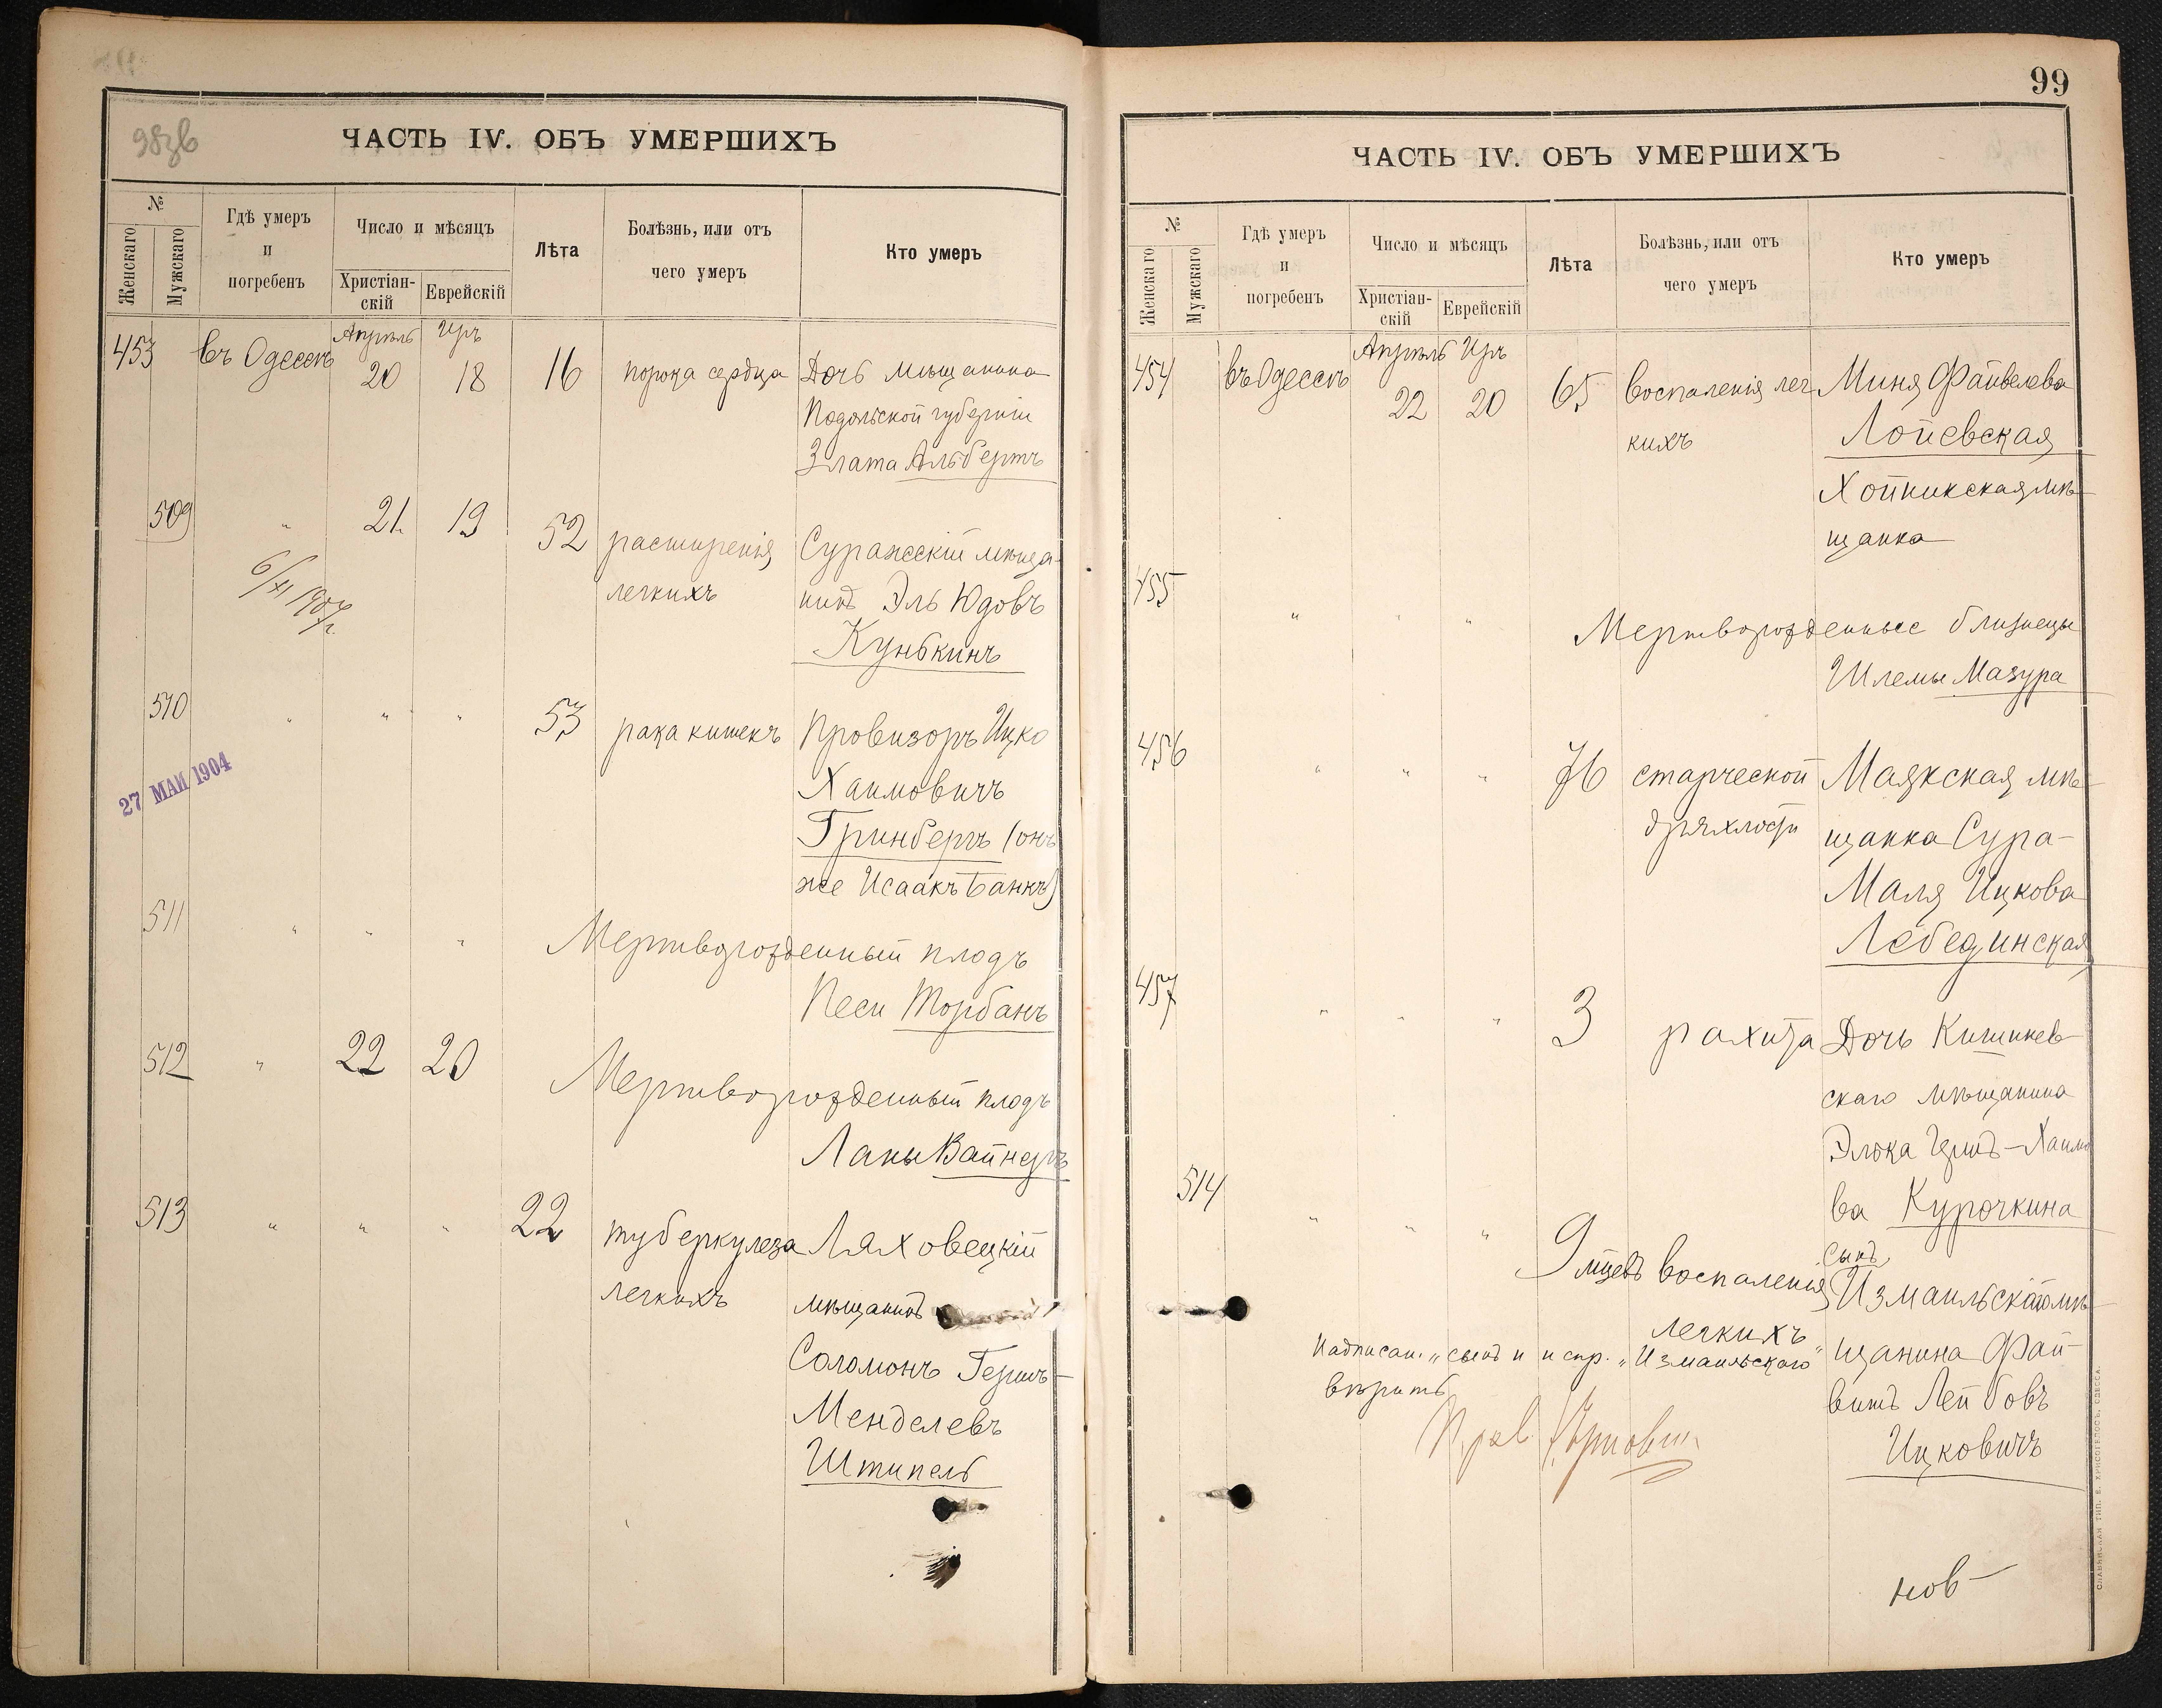 98зв
ЧАСТЬ IV. ОБЪ УМЕРШИХЪ
№
Женскаго
Мужскаго
Гдѣ умеръ
и
погребенъ
Число и мѣсяцъ
Христіан-
скій
Еврейскій
Лѣта
Болѣзнь, или отъ
чего умеръ
Кто умеръ
Апрѣль Иръ
453 въ Одессѣ 20 18 16 порока сердца Дочь мѣщанина
Подольской губерніи
Злата Альбертъ
509 " 21 19 52 расширенія Суражскій мѣща-
легкихъ нинъ Эль Юдовъ
Кунькинъ
6/XI 1907 г.
510 " " " 53 рака кишекъ Провизоръ Ицко
Хаимовичъ
Гринбергъ (онъ
же Исаакъ Банкъ)
27 МАЙ 1904
511 " " " Мертворожденный плодъ
Песи Торбанъ
512 " 22 20 Мертворожденный плодъ
Ланы Вайнеръ
513 " " " 22 туберкулеза Ляховецкій
легкихъ мѣщанинъ
Соломонъ Гершъ-
Менделевъ
Штипель
99
ЧАСТЬ IV. ОБЪ УМЕРШИХЪ
№
Женскаго
Мужскаго
Гдѣ умеръ
и
погребенъ
Число и мѣсяцъ
Христіан-
скій
Еврейскій
Лѣта
Болѣзнь, или отъ
чего умеръ
Кто умеръ
Апрѣль Иръ
454 въ Одессѣ 22 20 65 воспаленія лег- Миня Файвелева
кихъ Лоевская
Хойникская мѣ-
щанка
455 " " " Мертворожденные близнецы
Шлемы Мазура
456 " " " 76 старческой Маякская мѣ-
дряхлости щанка Сура-
Маля Ицкова
Лебединская
457 " " " 3 рахита Дочь Кишинев-
скаго мѣщанина
Элька Хаимо
ва Курочкина
514 " " " 9 мцевъ воспаленія Сынъ
легкихъ Измаильскаго мѣ-
щанина Фай-
вишъ Лейбовъ
Ицковичъ
Надписан. „сынъ" и испр. „Измаильскаго"
вѣрить
нов-
СЛАВЯНСКАЯ ТИП. Е. ХРИСОГЕЛОСЪ, ОДЕССА.